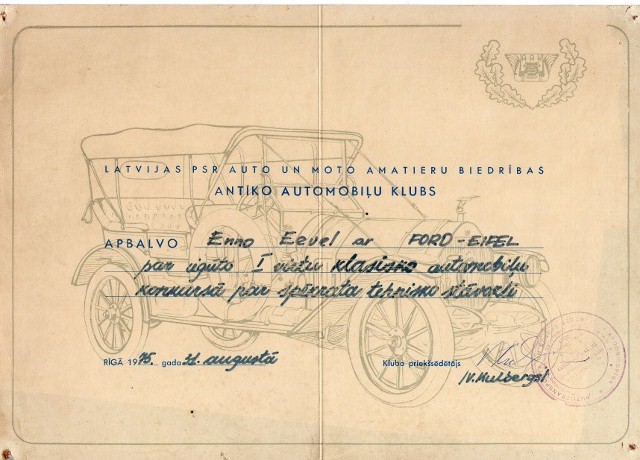 LATVIJAS PSR AUTO UN MOTO AMATIERU BIEDRĪBAS
ANTĪKO AUTOMOBIĻU KLUBS
APBALVO Enno Eevel ar FORD-EIFEL
par iegūto I vietu klasisko automobiļu
konkursā par spēkrata tehnisko stāvokli
RĪGĀ 1975. gada 31. augustā
Kluba priekšsēdētājs
/V. Kulbergs/